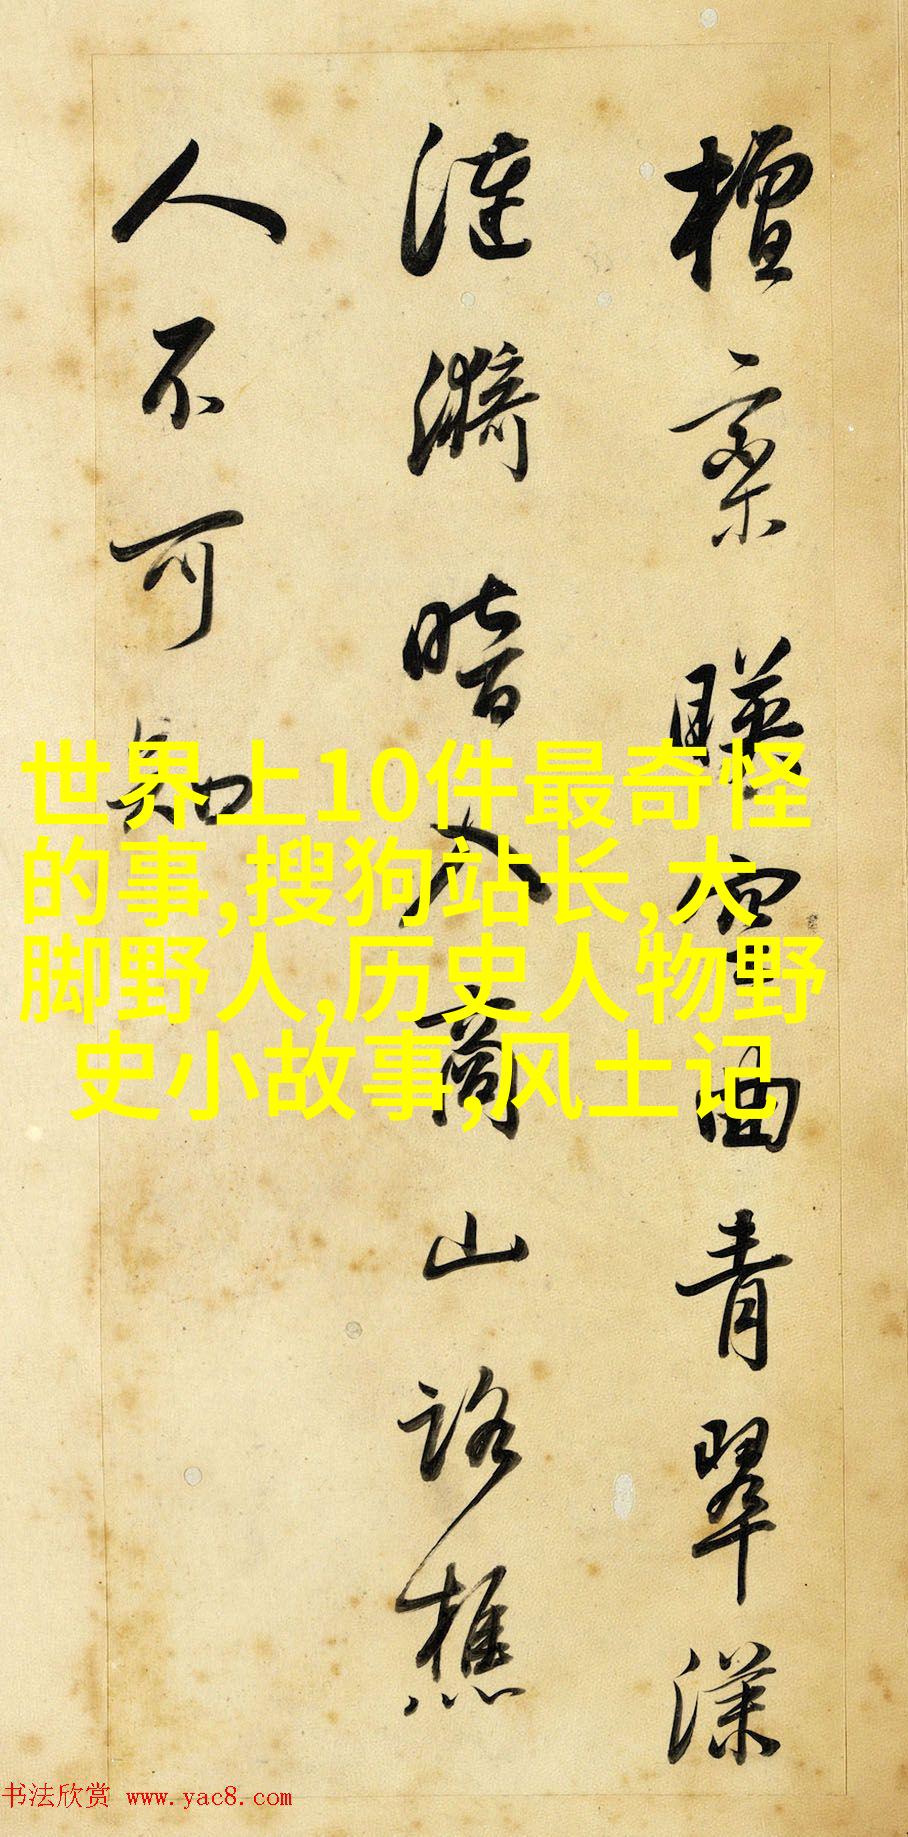 檀欒映空曲青翠漾
漣漪暗入商山路樵
人不可知
世界上10件最奇怪
的事,搜狗站长,大
脚野人,历史人物野
史小故事,风土记
书法欣赏 www.yac8.com